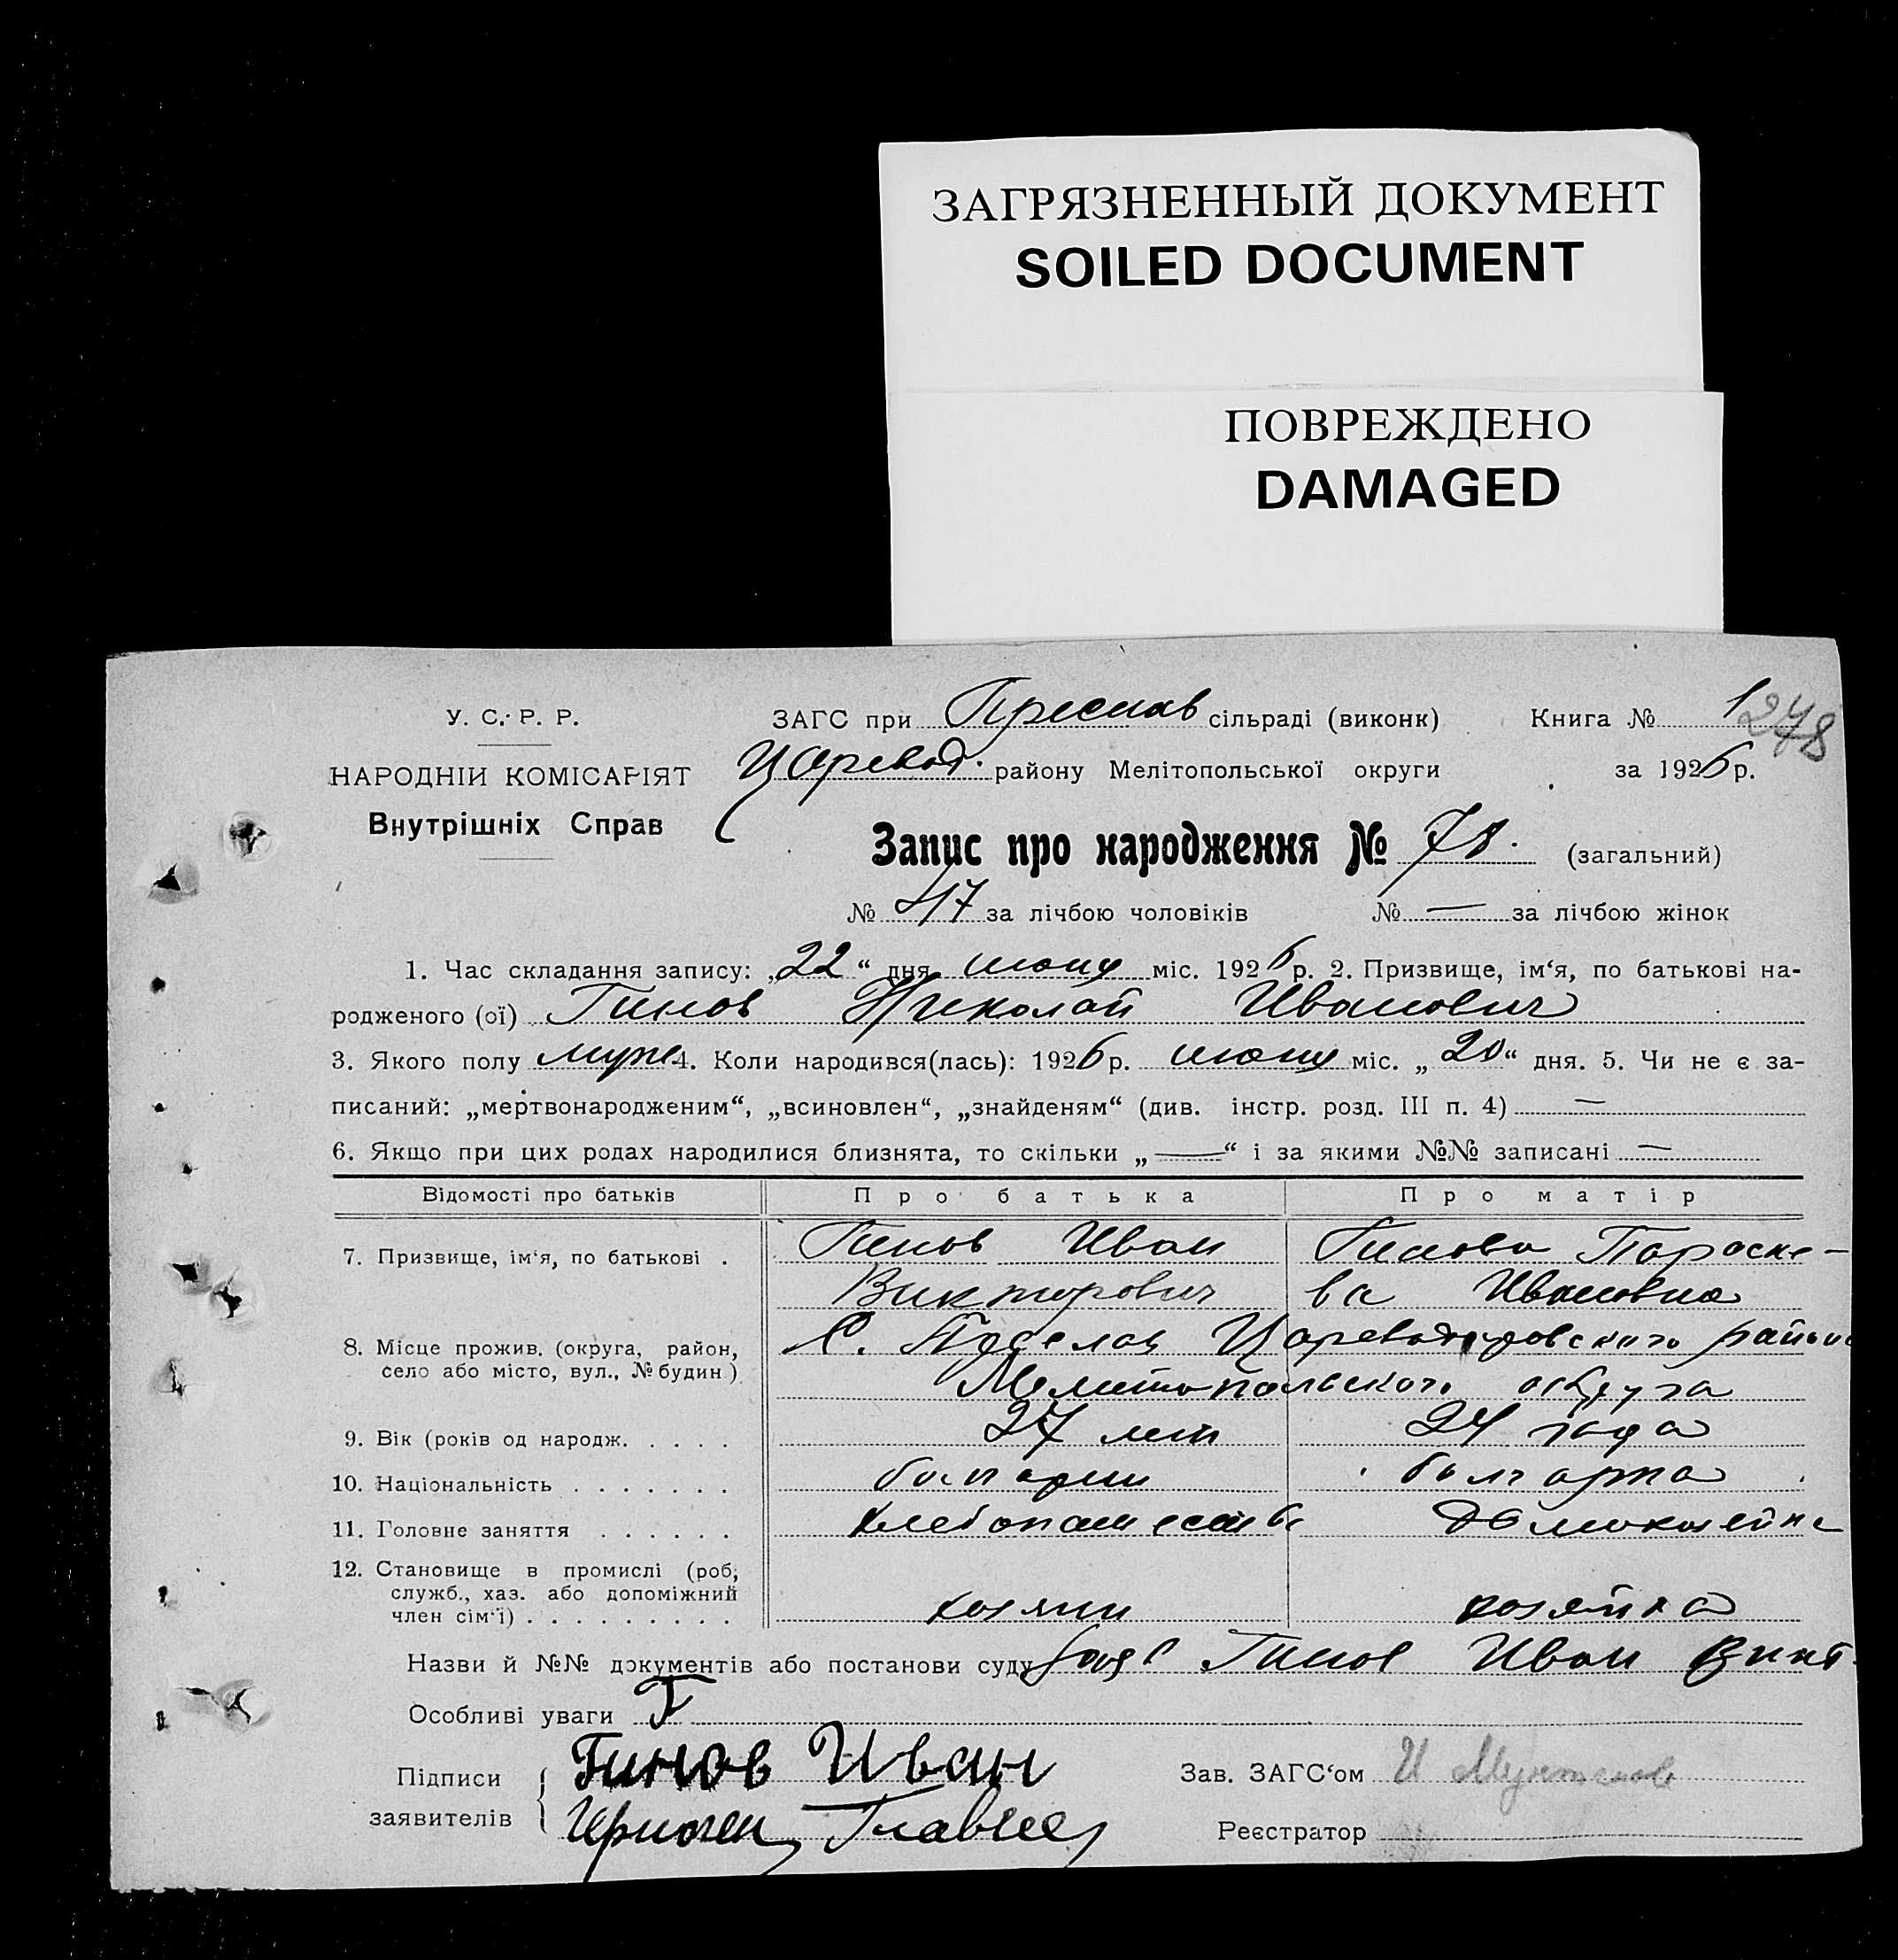 ЗАГРЯЗНЕННЫЙ ДОКУМЕНТ
SOILED DOCUMENT
ПОВРЕЖДЕНО
DAMAGED
У. С. Р. Р.
ЗАГС при Преслав сільраді (виконк)
Книга № 1
278
НАРОДНІЙ КОМІСАРІЯТ
Царевод. району Мелітопольської округи
за 1926 р.
Внутрішніх Справ
Запис про народження № 78. (загальний)
№ 47 за лічбою чоловіків № — за лічбою жінок
1. Час складання запису: „22“ дня июня міс. 1926 р. 2. Призвище, ім‘я, по батькові на-
родженого (ої) Гинов Николай Иванович
3. Якого полу муж 4. Коли народився(лась): 1926 р. июня міс. „20“ дня. 5. Чи не є за-
писаний: „мертвонародженим“, „всиновлен“, „знайденям“ (див. інстр. розд. III п. 4) —
6. Якщо при цих родах народилися близнята, то скільки „—“ і за якими №№ записані —
Відомості про батьків Про батька Про матір
7. Призвище, ім‘я, по батькові . Гинов Иван Гинова Параске-
Викторович ва Ивановна
8. Місце прожив. (округа, район, С. Преслав Цареводаровского района
село або місто, вул., № будин.) Мелитопольского округа
9. Вік (років од народж. . . . . 27 лет 24 года
10. Національність . . . . . . . болгарин болгарка
11. Головне заняття . . . . . . хлебопашество домохозяйка
12. Становище в промислі (роб,
служб., хаз. або допоміжний
член сім‘ї) . . . . . . . . . хозяин хозяйка
Назви й №№ документів або постанови суду Гинов Иван Викт.
Особливі уваги
Підписи Гинов Иван Зав. ЗАГС‘ом И
заявителів Реєстратор